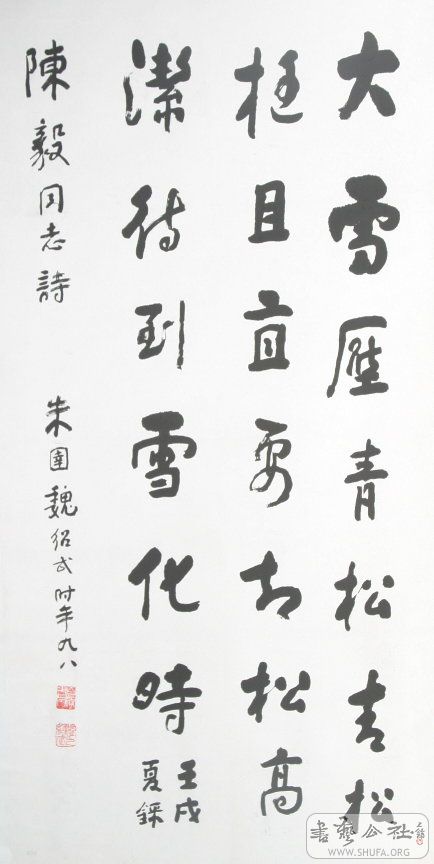 大雪壓青松青松
挺且直要知松高
潔待到雪化時
壬戌
夏錄
陳毅同志詩
朱圉魏紹武时年九八
書藝公社
WWW.SHUFA.ORG